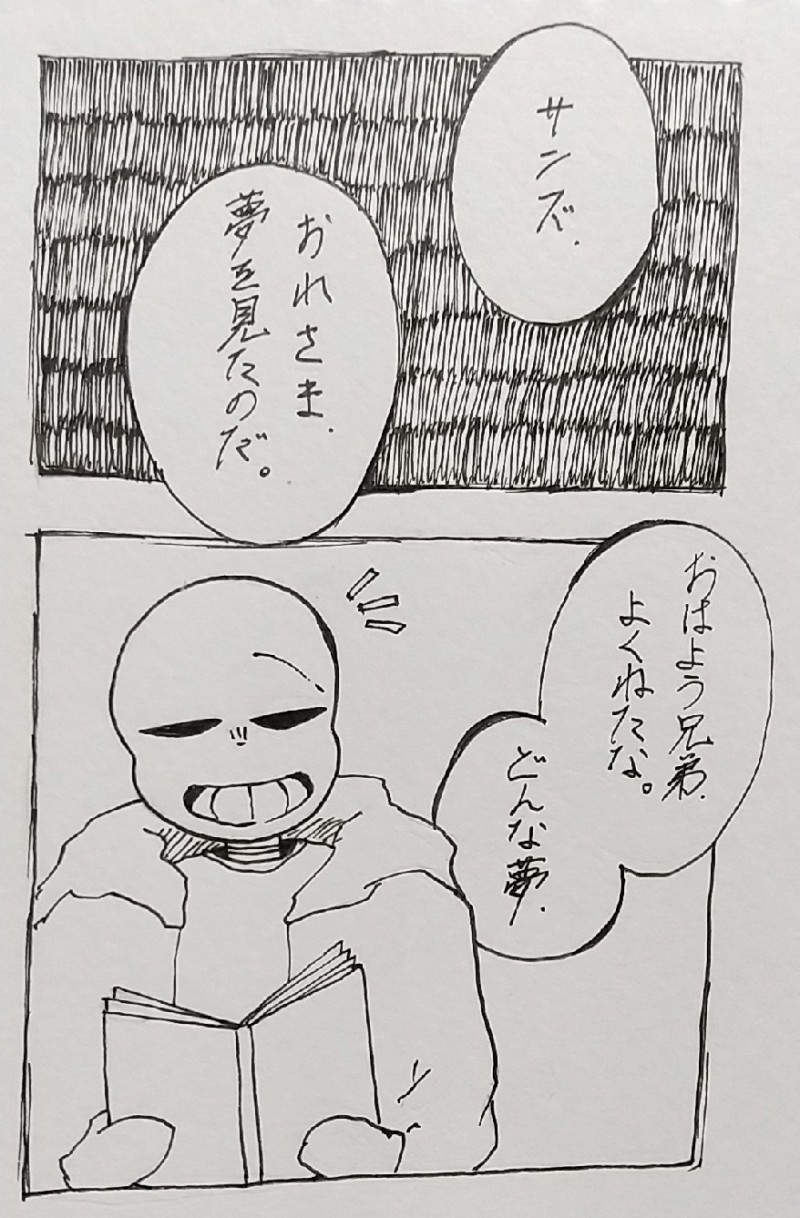 サンズ、
おれさま、
夢を見たのだ。
おはよう兄弟、
よくねたな。
どんな夢、